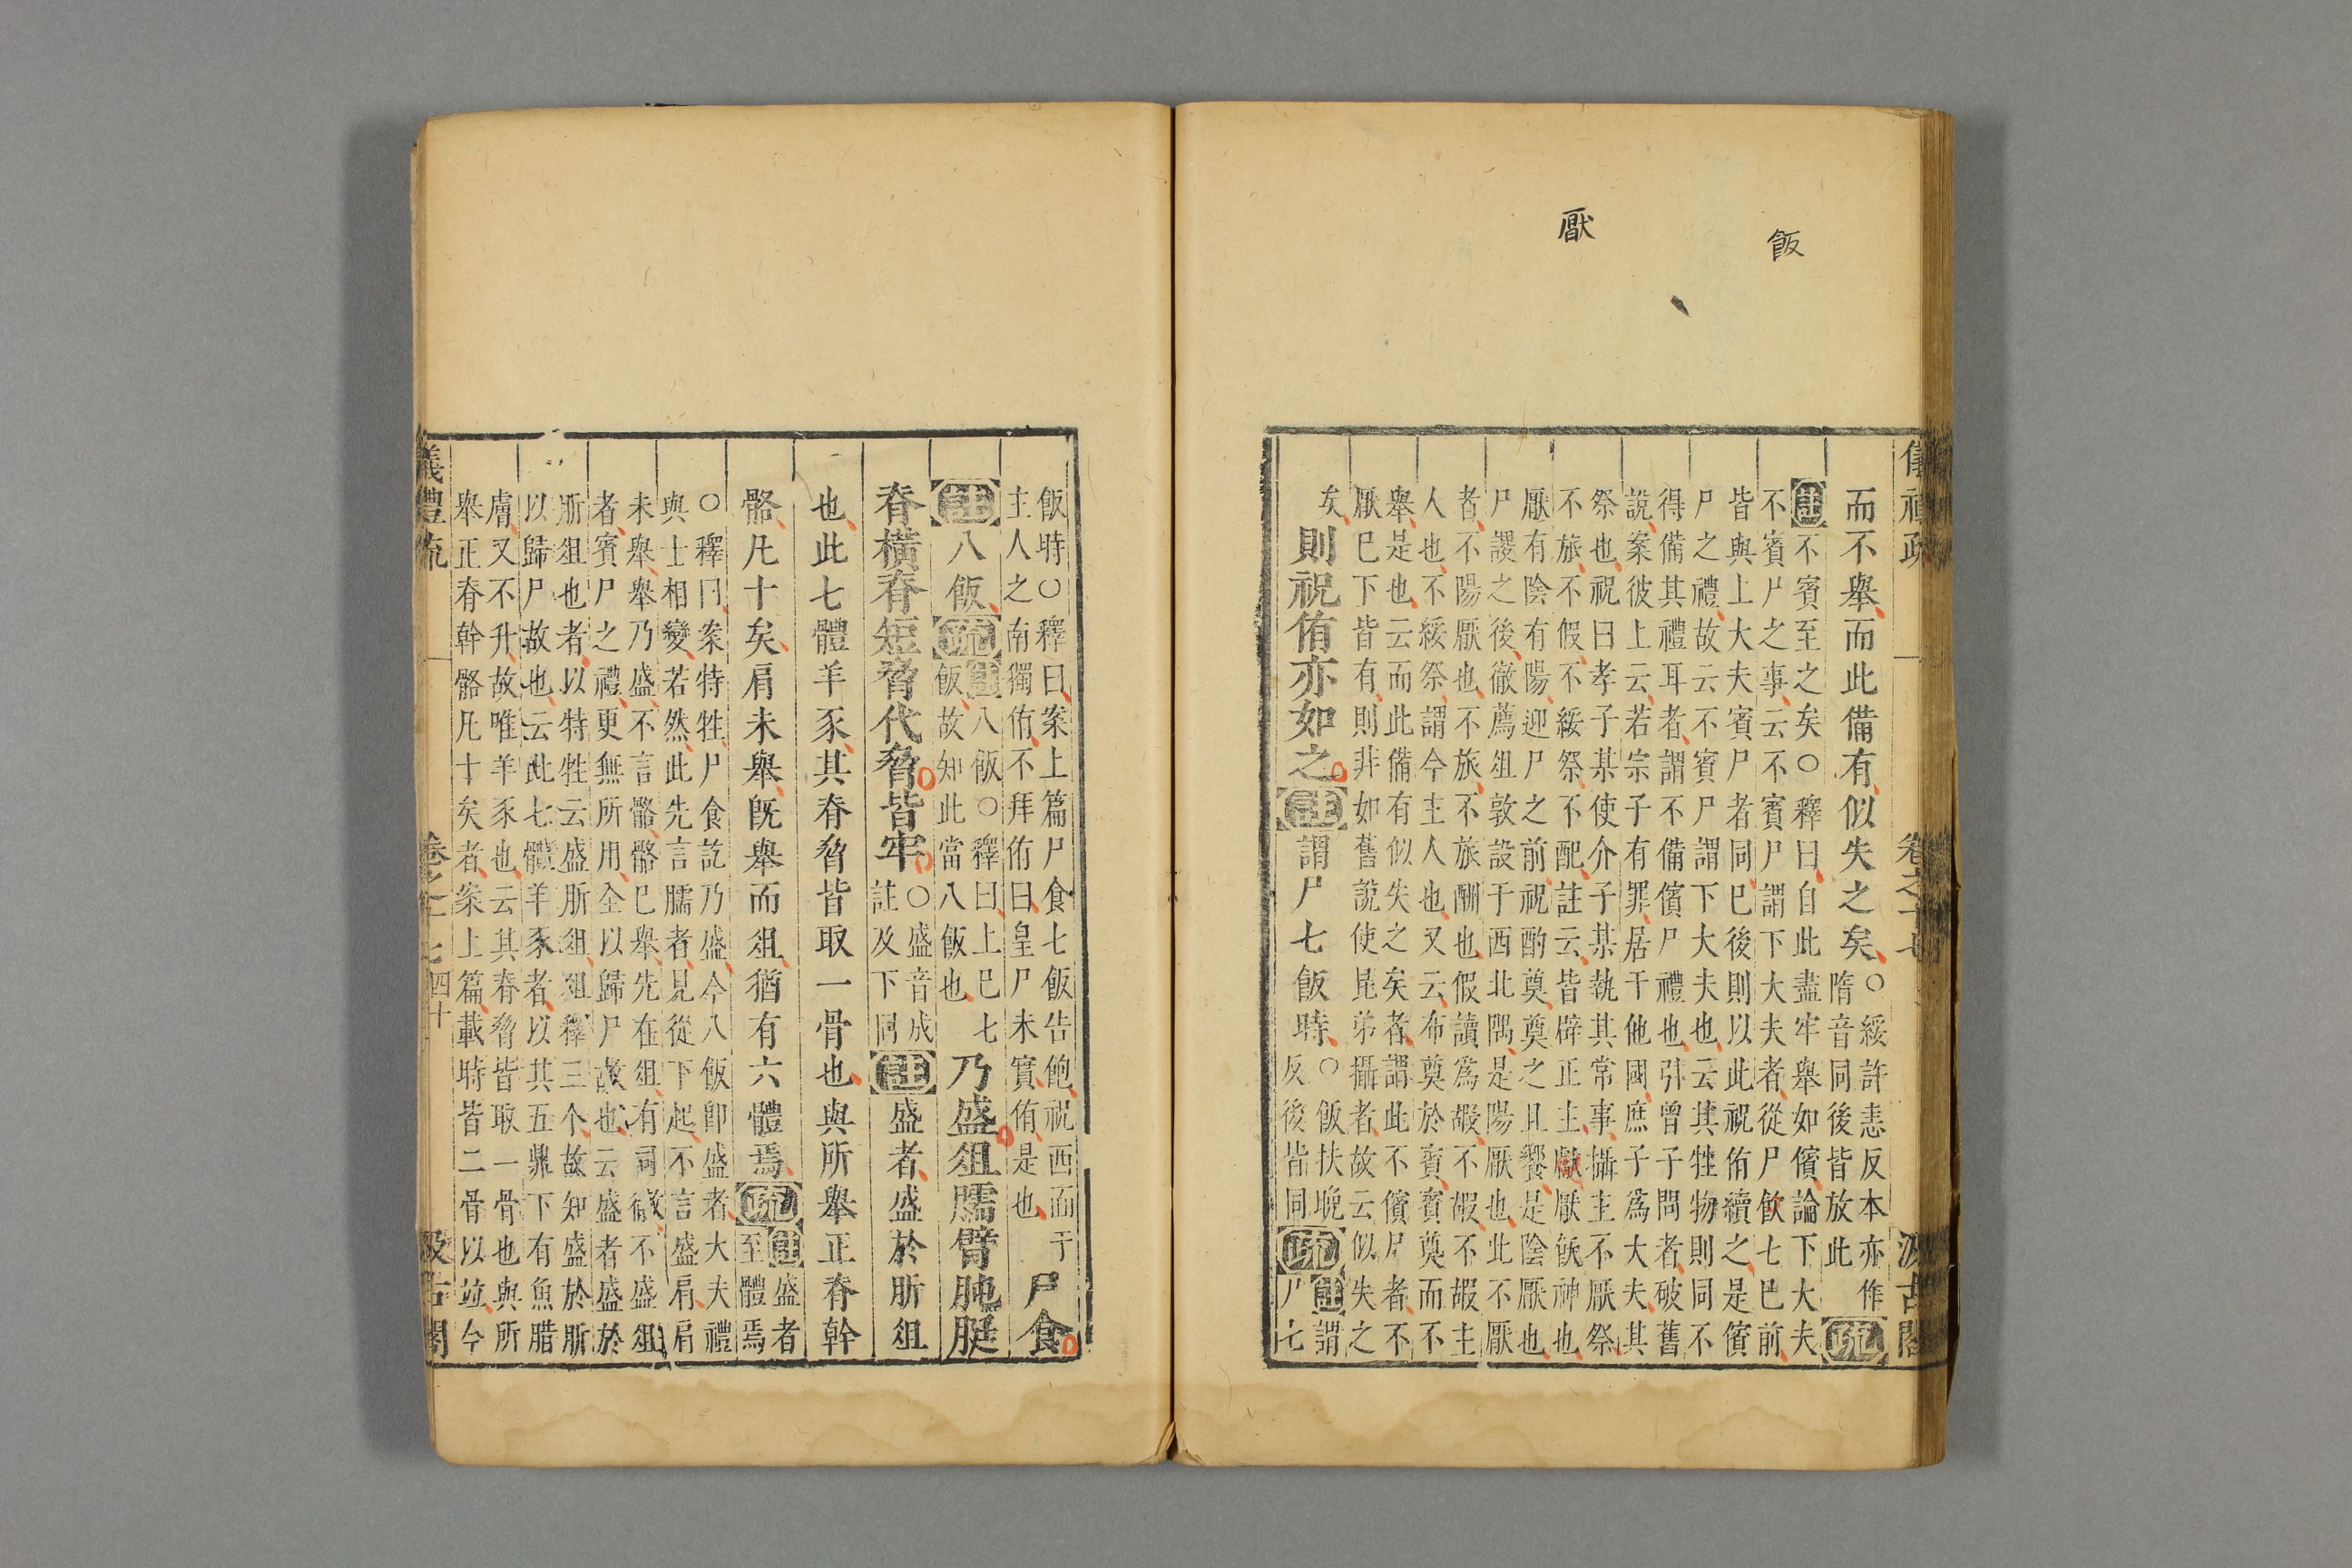 飯
厭
儀禮疏 卷之十七 汲古閣
而不舉而此備有似失之矣○綏許恚反本亦作
隋音同後皆放此疏
註不賓至之矣○釋曰自此盡牢舉如儐論下大夫
不賓尸之事云不賓尸謂下大夫者從尸飲七巳前
皆與上大夫賓尸者同巳後則以此祝侑續之是儐
尸之禮故云不賓尸謂下大夫也云其牲物則同不
得備其禮耳者謂不備儐尸禮也引曾子問者破舊
說案彼上云若宗子有罪居于他國庶子爲大夫其
祭也祝曰孝子某使介子某執其常事攝主不厭祭
不旅不假不綏祭不配註云皆辟正主獻厭飫神也
厭有陰有陽迎尸之前祝酌奠奠之且饗是陰厭也
尸謖之後徹薦俎敦設于西北隅是陽厭也此不厭
者不陽厭也不旅不旅酬也假讀爲嘏不嘏不嘏主
人也不綏祭謂今主人也又云布奠於賓賓奠而不
舉是也云而此備有似失之矣者謂此不儐尸者不
厭巳下皆有則非如舊說使昆弟攝者故云似失之
矣
則祝侑亦如之註謂尸七飯時○飯扶晚
反後皆同疏註謂
尸七
飯時○釋曰案上篇尸食七飯告飽祝西面于
主人之南獨侑不拜侑曰皇尸未實侑是也
尸食
註八飯疏註八飯○釋曰上巳七
飯故知此當八飯也
乃盛俎臑臂肫脡
脊橫脊短脅代脅皆牢○盛音成
註及下同註盛者盛於肵俎
也此七體羊豕其脊脅皆取一骨也與所舉正脊幹
骼凡十矣肩未舉旣舉而俎猶有六體焉疏註盛者
至體焉
○釋曰案特牲尸食訖乃盛今八飯卽盛者大夫禮
與士相變若然此先言臑者見從下起不言盛肩肩
未舉舉乃盛不言骼骼巳舉先在俎有司徹不盛俎
者賓尸之禮更無所用全以歸尸故也云盛者盛於
肵俎也者以特牲云盛肵俎俎釋三个故知盛於肵
以歸尸故也云此七體羊豕者以其五鼎下有魚腊
膚又不升故唯羊豕也云其脊脅皆取一骨也與所
舉正脊幹骼凡十矣者案上篇載時皆二骨以竝今
儀禮疏 卷之十七 四十 汲古閣